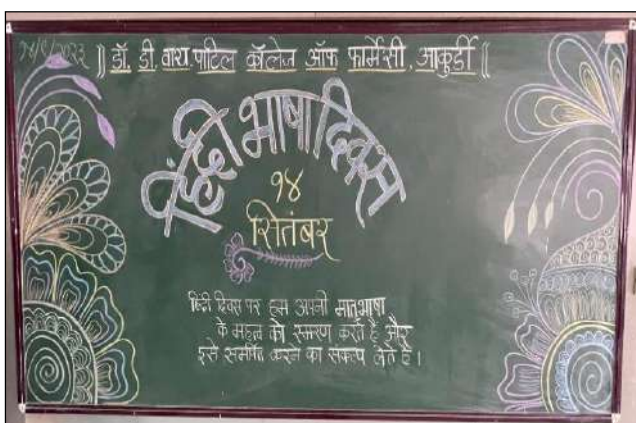 १४/९/२०२३
|| डॉ. डी. वाय. पाटिल कॉलेज ऑफ फार्मसी, आकुर्डी ||
हिंदी भाषा दिवस
१४
सितंबर
हिंदी दिवस पर हम अपनी मातृभाषा
के महत्व को स्मरण करते है और
इसे समर्पित करने का संकल्प लेते है।